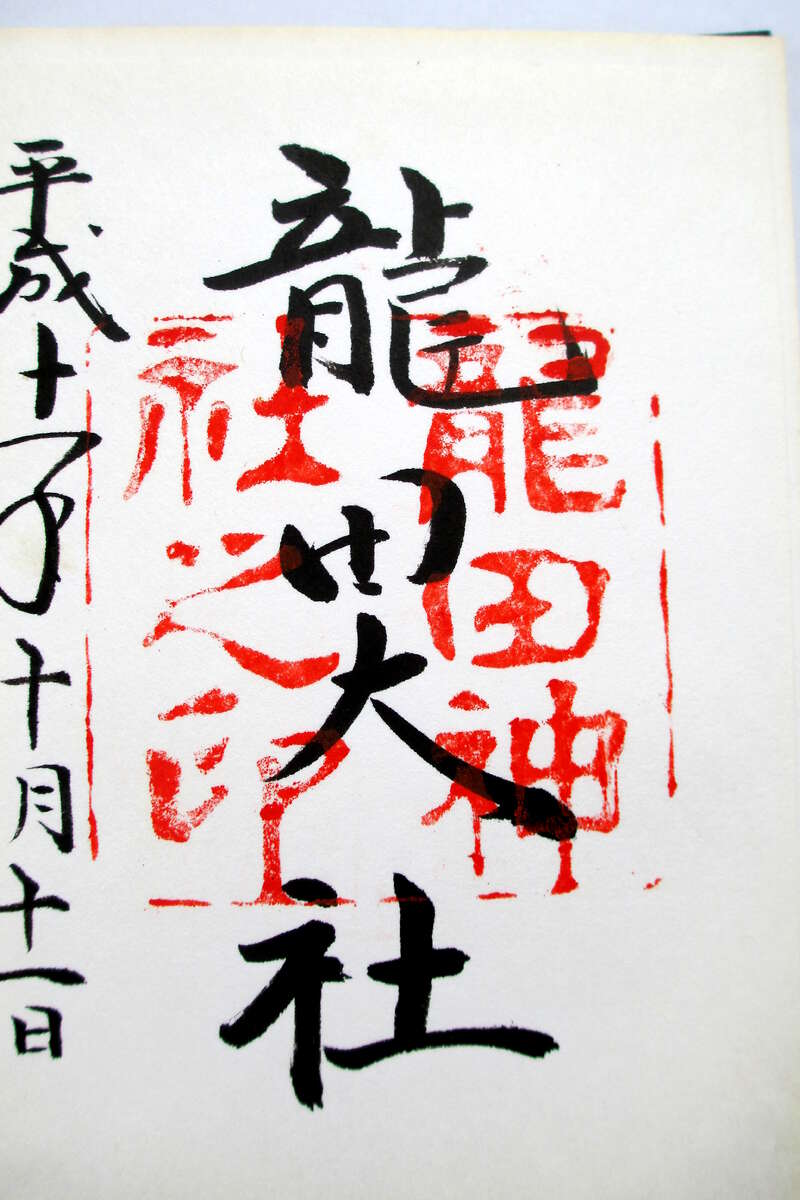 龍田大社
龍田神
社之印
平成十年十月十一日